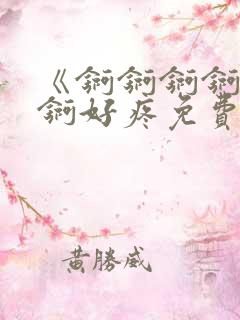 《锕锕锕锕
锕好疼免費
黃勝威